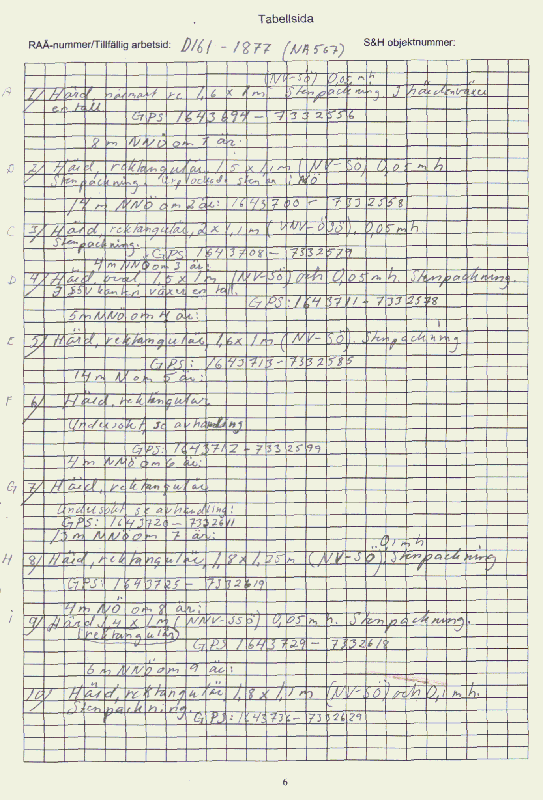 Tabellsida
RAÄ-nummer/Tillfällig arbetsid: D161 - 1877 (NA567) S&H objektnummer:
(NV-SÖ) 0,05 m h
A 1) Härd närmast 1,6 x 1 m Stenpackning. I härden växer
en tall. GPS 1643694 - 7332556
8 m NNÖ om 1 är:
B 2) Härd, rektangulär, 1,5 x 1,1 m (NV-SÖ) 0,05 m h
Stenpackning. stenar i NÖ
14 m NNÖ om 2 är: 1643700 - 7332558
C 3) Härd, rektangulär, 2 x 1,1 m (VNV-ÖSÖ). 0,05 m h
Stenpackning. GPS 1643708 - 7332579
4 m NNÖ om 3 är:
D 4) Härd, oval, 1,5 x 1 m (NV-SÖ) och 0,05 m h. Stenpackning.
I SSV kanten växer en tall. GPS: 1643711 - 7332578
5 m NNÖ om 4 är:
E 5) Härd, rektangulär, 1,6 x 1 m (NV-SÖ). Stenpackning
GPS: 1643713 - 7332585
14 m N om 5 är:
F 6) Härd, rektangulär.
Undersökt, se avhandling
GPS: 1643712 - 7332599
4 m NNÖ om 6 är:
G 7) Härd, rektangulär
Undersökt se avhandling:
GPS: 1643720 - 7332611
13 m NNÖ om 7 är:
0,1 m h
H 8) Härd, rektangulär, 1,8 x 1,75 m (NV-SÖ). Stenpackning
GPS: 1643725 - 7332619
4 m NÖ om 8 är:
i 9) Härd 1,4 x 1 m (NNV-SSÖ) 0,05 m h. Stenpackning.
(rektangulär)
GPS 1643729 - 7332618
6 m NNÖ om 9 är:
10) Härd, rektangulär 1,8 x 1,1 m (NV-SÖ) och 0,1 m h.
Stenpackning. GPS: 1643736 - 7332629
6